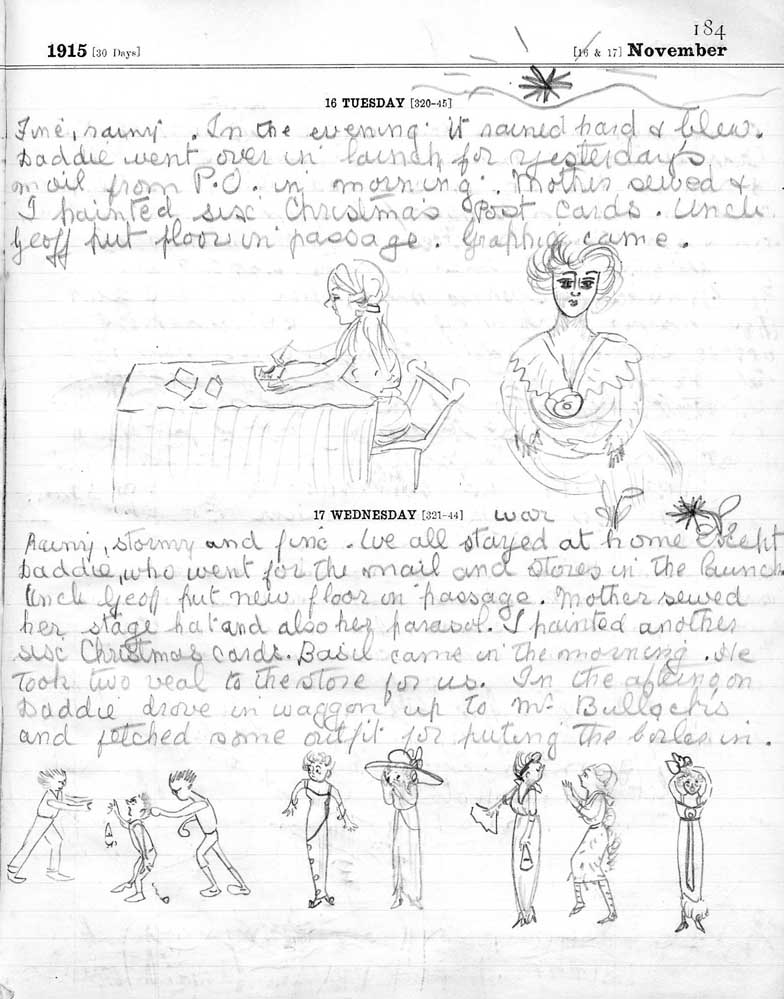 184
1915 [30 Days] [16 & 17] November
16 TUESDAY [320-45]
Fine, rainy. In the evening it rained hard & blew.
Daddie went over in launch for yesterday's
mail from P.O. in morning. Mother sewed &
I painted six Christmas Post cards. Uncle
Geoff put floor in passage. Graphic came.
17 WEDNESDAY [321-44] war
Rainy, stormy and fine. We all stayed at home except
Daddie, who went for the mail and stores in the launch
Uncle Geoff put new floor in passage. Mother sewed
her stage hat and also her parasol. I painted another
six Christmas cards. Basil came in the morning. He
took two veal to the store for us. In the afternoon
Daddie drove in waggon up to Mr Bullock's
and fetched some outfit for puting the boiler in.